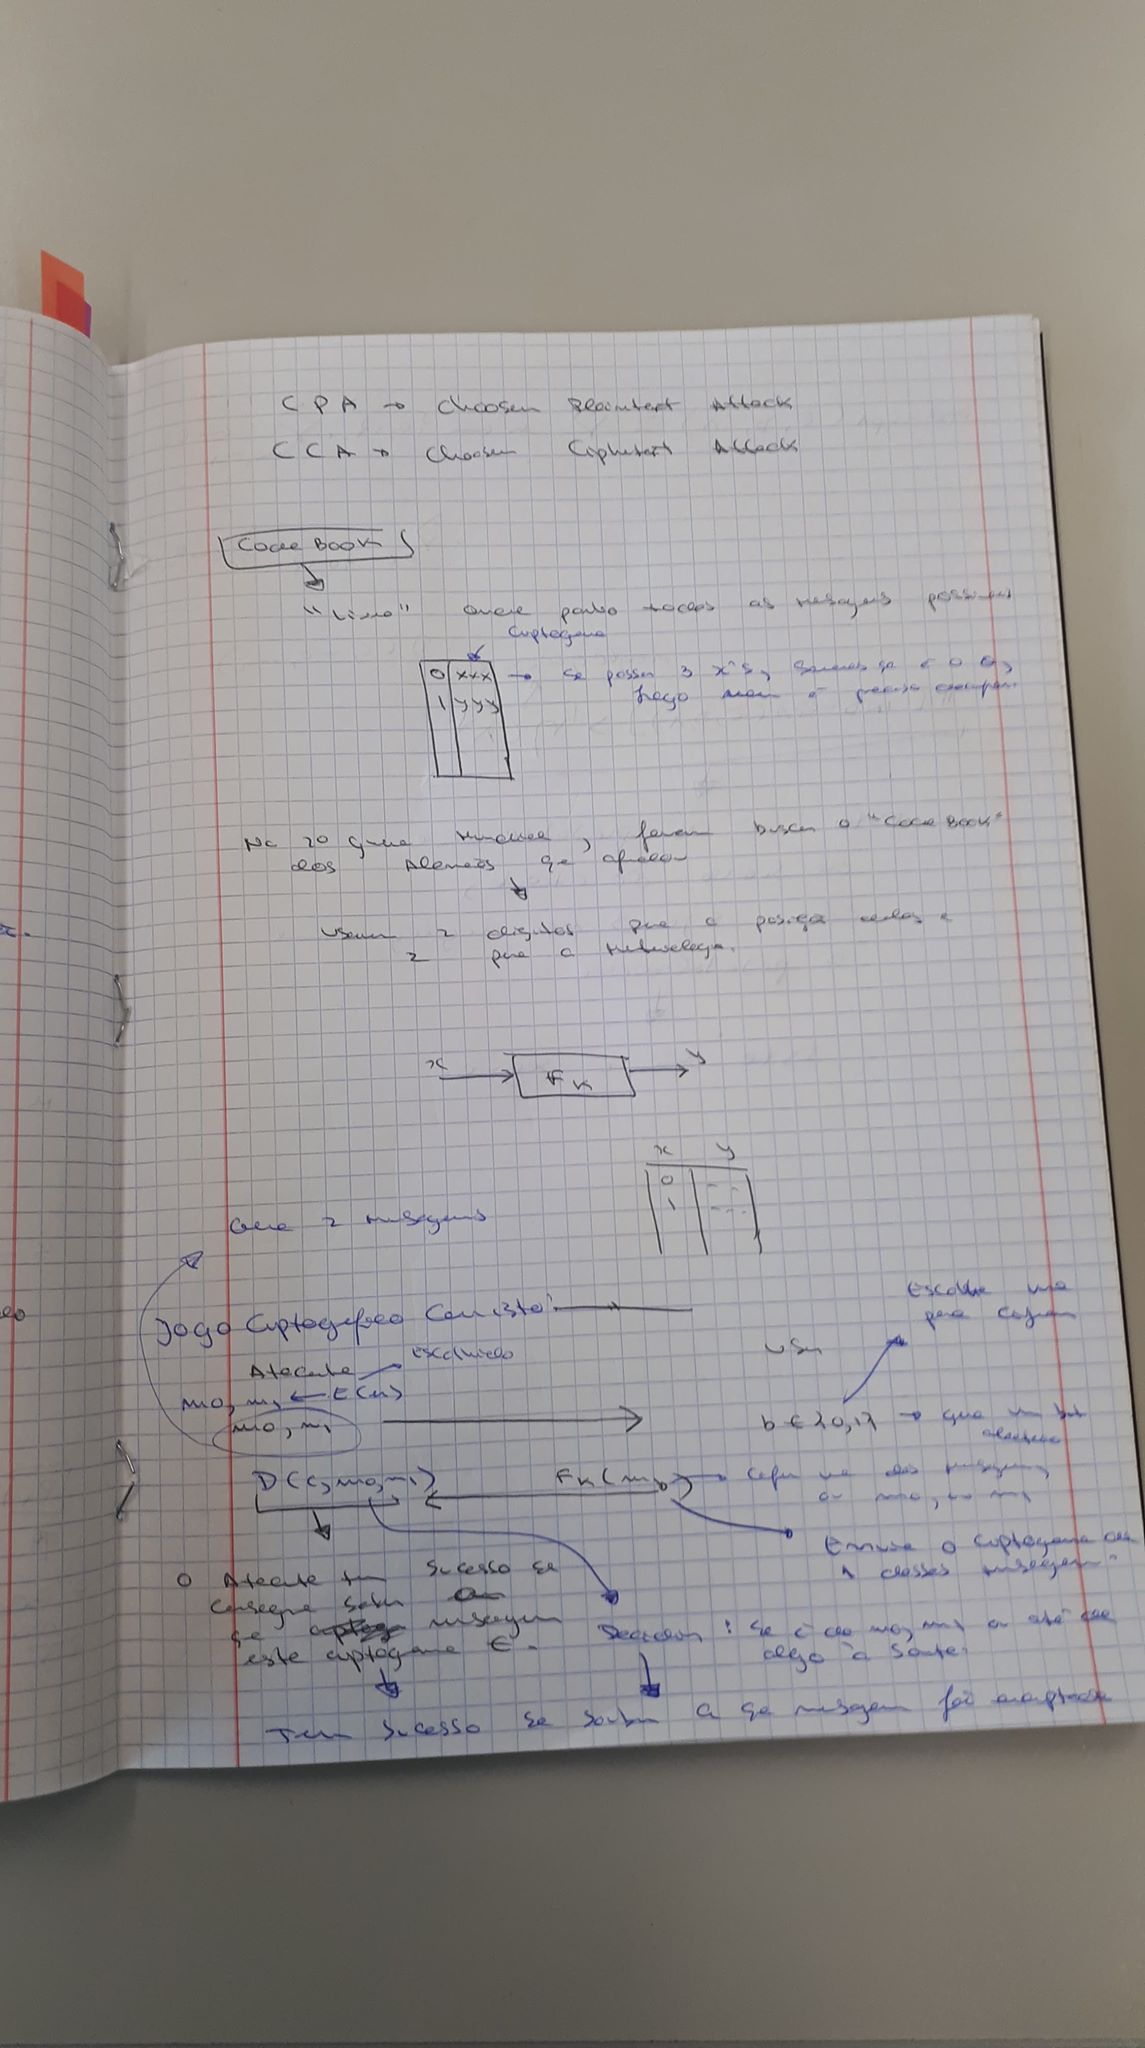 CPA → Choosen Plaintext Attack
CCA → Choosen Ciphertext Attack
Code Book
"Livro" onde ponho todas as mensagens possíveis
Criptograma
0 xxx → Se passar 3 x's, sabemos qe é o 0,
1 yyy logo nem é preciso
Na 2ª guerra mundial, foram buscar o "Code Book"
dos Alemães qe
Usavam 2 dígitos para a posição e
2 para a meteorologia.
x → Fk → y
x y
0
1
Gera 2 mensagens
Escolhe uma
para cifrar
Jogo Criptográfico Consiste:
Atacante Escolhido
User
m0, m1 ← E(n)
m0, m1
b ∈ {0,1} → gera um bit
aleatório
D(c, m0, m1)
Fk(mb) → Cifra uma das mensagens,
ou m0, ou m1
Envia o criptograma de
1 dessas mensagens.
O Atacante tem sucesso se
consegue saber
qe mensagem
este criptograma é.
Decidir: Se é do m0, m1 ou até de
algo à sorte.
Tem sucesso se souber a qe mensagem foi encriptada